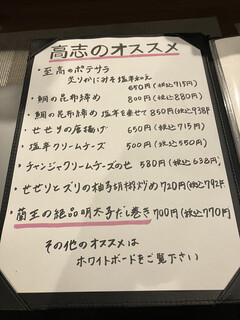 高志のオススメ
・至高のポテサラ
炙りがにみそ塩辛和え
650円(税込715円)
・鯛の昆布締め 800円(税込880円)
・鯛の昆布締め 塩辛を乗せて 850円(税込938円
・せせりの唐揚げ 650円(税込715円)
・塩辛クリームチーズ 500円(税込550円)
・チャンジャクリームチーズのせ 580円(税込638円)
・せせりとズリの柚子胡椒炒め 720円(税込792円
・蘭王の絶品明太子だし巻き 700円(税込770円)
その他のオススメは
ホワイトボードをご覧下さい